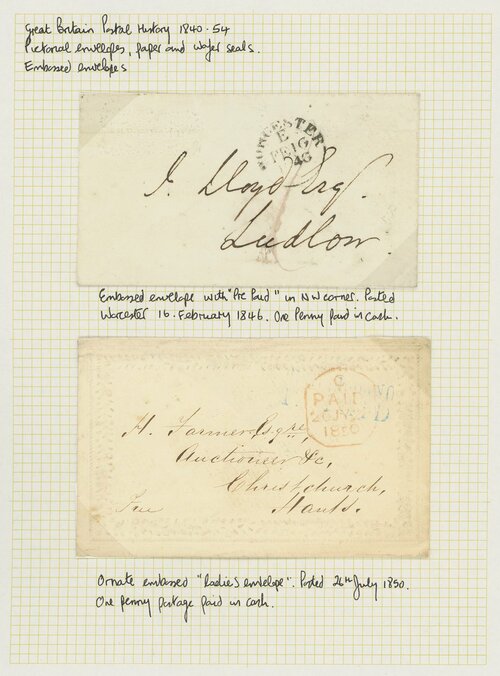 Great Britain Postal History 1840-54
Pictorial envelopes, paper and wafer seals.
Embossed envelopes
WORCESTER
E
FE 16
1846
J. Lloyd Esqr
Ludlow
Embossed envelope with "Pre Paid" in NW corner. Posted
Worcester 16. February 1846. One Penny paid in cash.
C
PAID
26 JY 26
1850
H. Farmer Esqre,
Auctioneer &c,
Christchurch,
Hants.
Ornate embossed "Ladies envelope". Posted 26th July 1850.
One penny postage paid in cash.